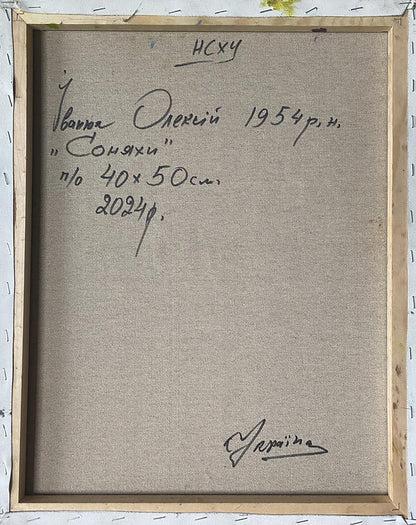 НСХУ
Іванюк Олексій 1954р.н.
„Соняхи"
п/о 40×50см.
2024р.
Україна